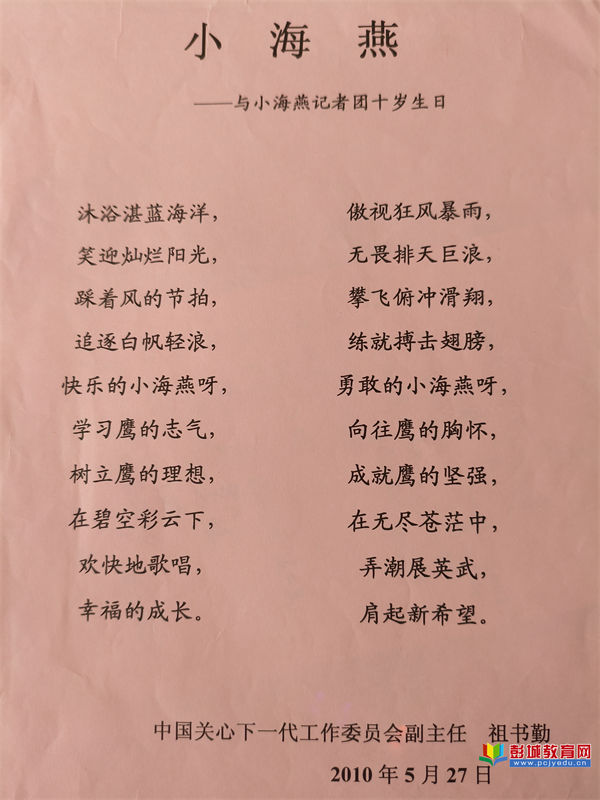 小海燕
——与小海燕记者团十岁生日
沐浴湛蓝海洋，
笑迎灿烂阳光，
踩着风的节拍，
追逐白帆轻浪，
快乐的小海燕呀，
学习鹰的志气，
树立鹰的理想，
在碧空彩云下，
欢快地歌唱，
幸福的成长。
傲视狂风暴雨，
无畏排天巨浪，
攀飞俯冲滑翔，
练就搏击翅膀，
勇敢的小海燕呀，
向往鹰的胸怀，
成就鹰的坚强，
在无尽苍茫中，
弄潮展英武，
肩起新希望。
中国关心下一代工作委员会副主任 祖书勤
2010年5月27日
彭城教育网
www.pcjyedu.cn